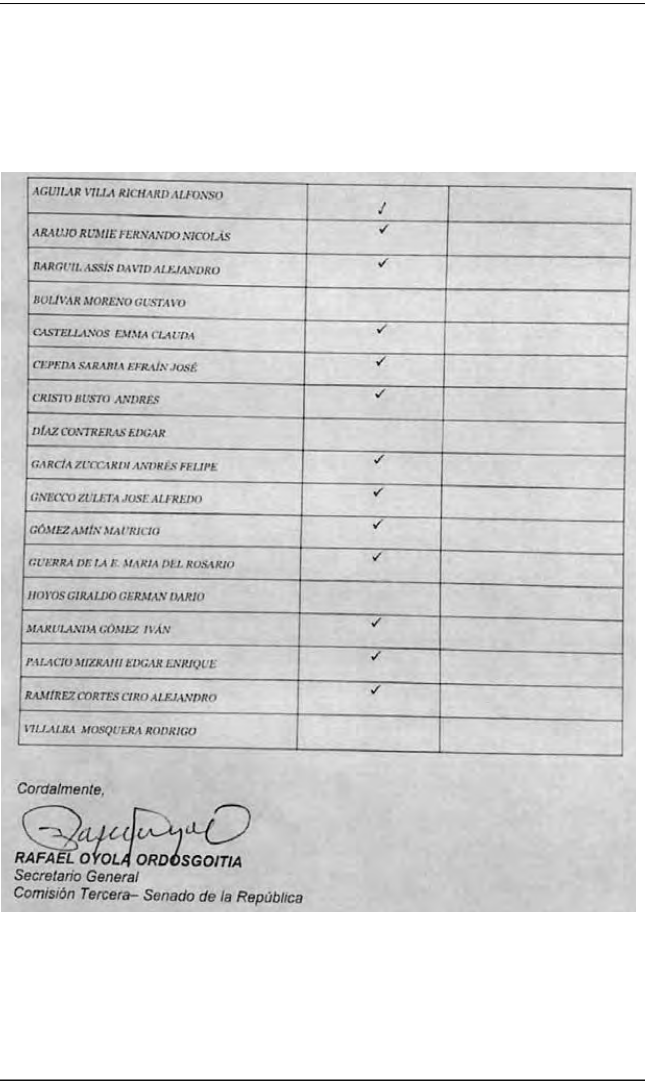 AGUILAR VILLA RICHARD ALFONSO ✓
ARAUJO RUMIE FERNANDO NICOLÁS ✓
BARGUIL ASSIS DAVID ALEJANDRO ✓
BOLÍVAR MORENO GUSTAVO
CASTELLANOS EMMA CLAUDA ✓
CEPEDA SARABIA EFRAÍN JOSÉ ✓
CRISTO BUSTO ANDRÉS ✓
DÍAZ CONTRERAS EDGAR
GARCÍA ZUCCARDI ANDRÉS FELIPE ✓
GNECCO ZULETA JOSE ALFREDO ✓
GÓMEZ AMÍN MAURICIO ✓
GUERRA DE LA E. MARIA DEL ROSARIO ✓
HOYOS GIRALDO GERMAN DARIO
MARULANDA GÓMEZ IVÁN ✓
PALACIO MIZRAHI EDGAR ENRIQUE ✓
RAMÍREZ CORTES CIRO ALEJANDRO ✓
VILLALBA MOSQUERA RODRIGO
Cordalmente,
RAFAEL OYOLA ORDOSGOITIA
Secretario General
Comisión Tercera– Senado de la República